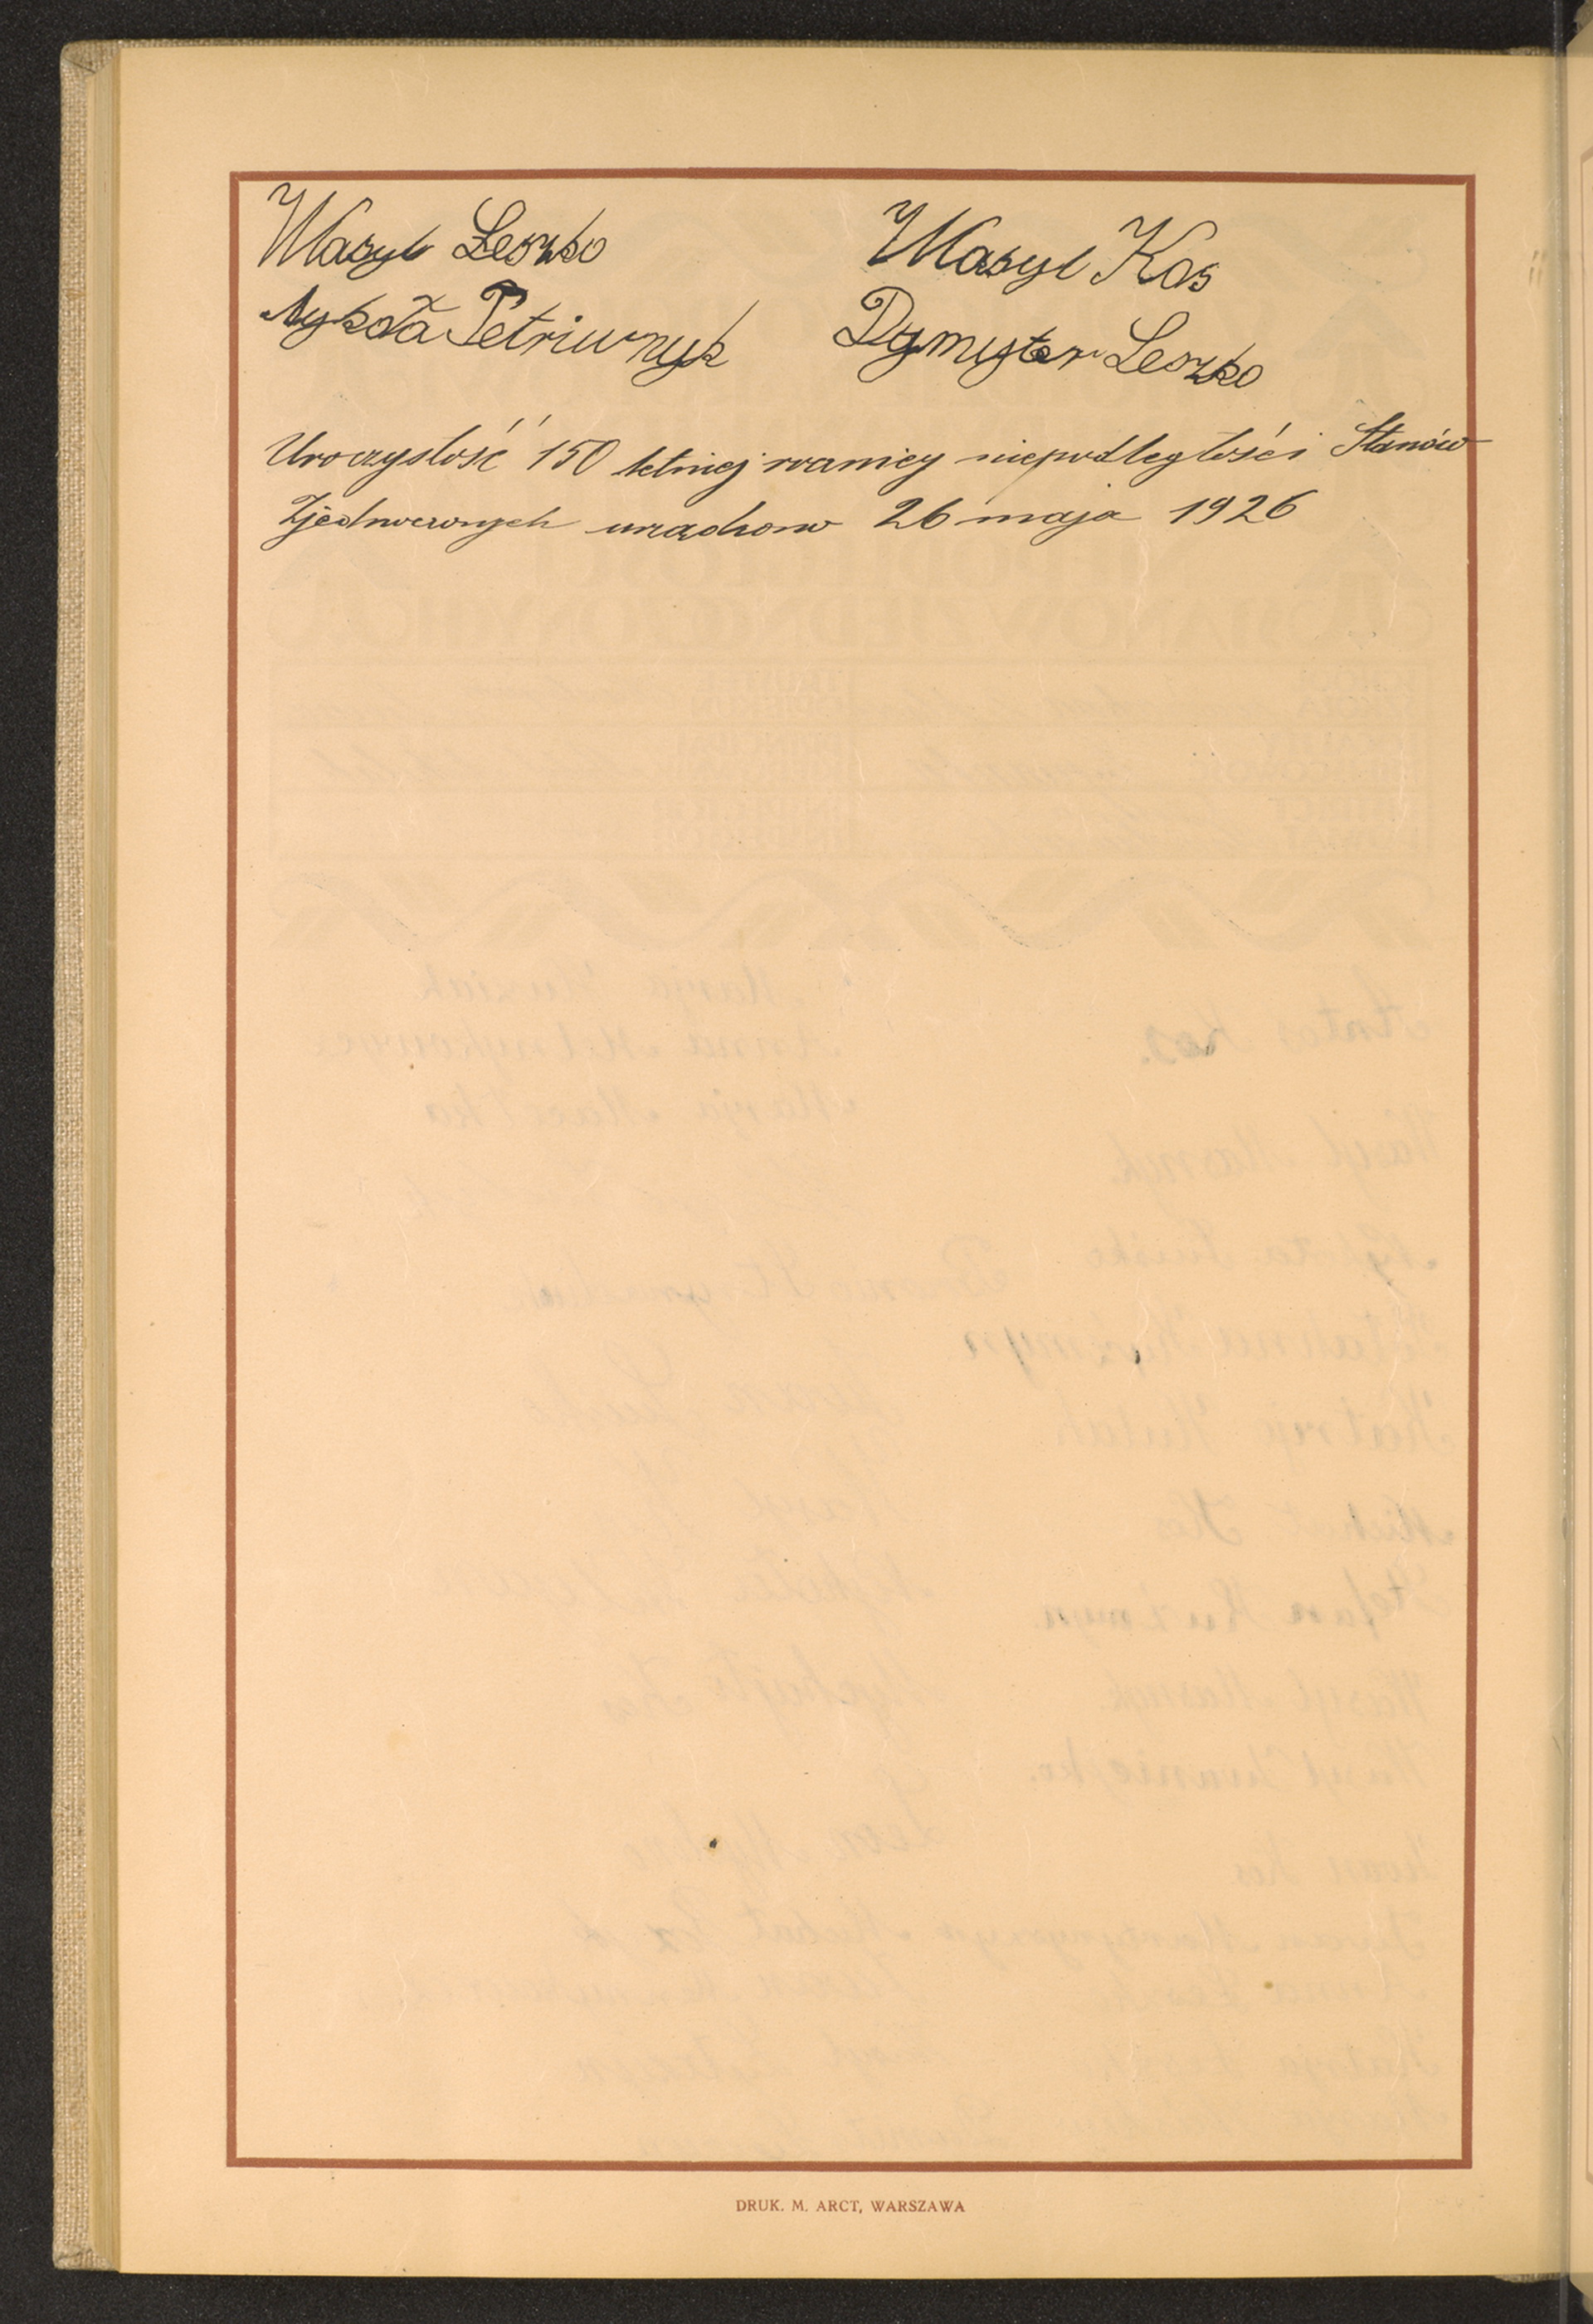 Wasyl Leszko
Wasyl Kos
Nykoła Petriwnyk
Dymyter Leszko
Uroczystość 150 letniej rocznicy niepodległości Stanów
Zjednoczonych urządzono 26 maja 1926
DRUK. M. ARCT, WARSZAWA